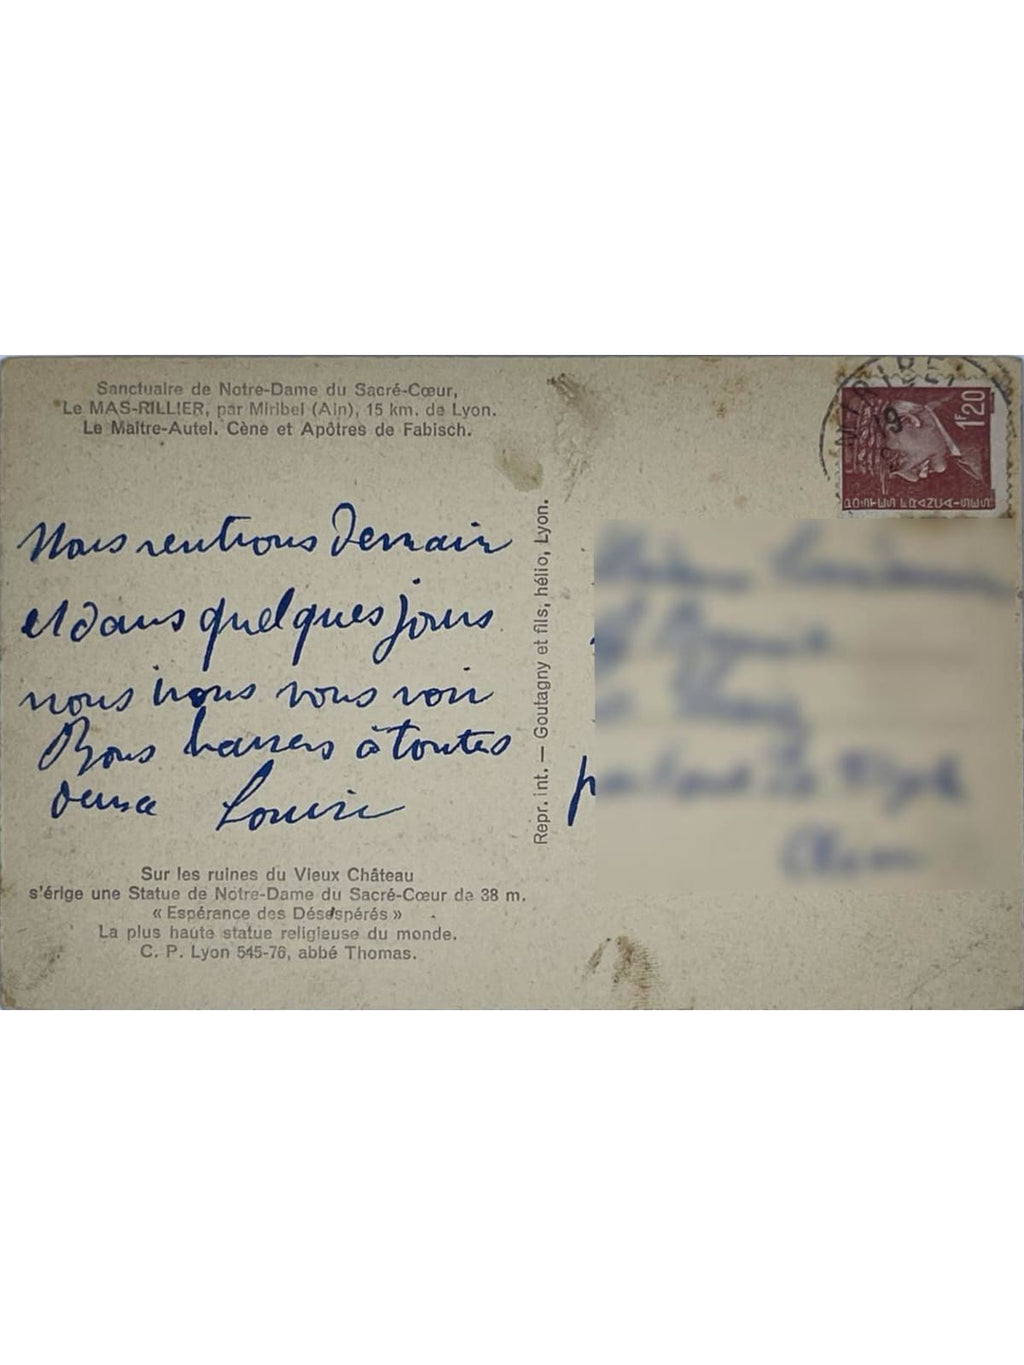 Sanctuaire de Notre-Dame du Sacré-Cœur,
Le MAS-RILLIER, par Miribel (Ain), 15 km. de Lyon.
Le Maître-Autel. Cène et Apôtres de Fabisch.
Nous rentrons Demain
et dans quelques jours
nous irons vous voir
Bons baisers à toutes
deux Louise
Sur les ruines du Vieux Château
s'érige une Statue de Notre-Dame du Sacré-Cœur de 38 m.
« Espérance des Désespérés »
La plus haute statue religieuse du monde.
C. P. Lyon 545-76, abbé Thomas.
Repr. int. — Goutagny et fils, hélio, Lyon.
MIRIBEL
19
1F20
POSTES FRANÇAISES